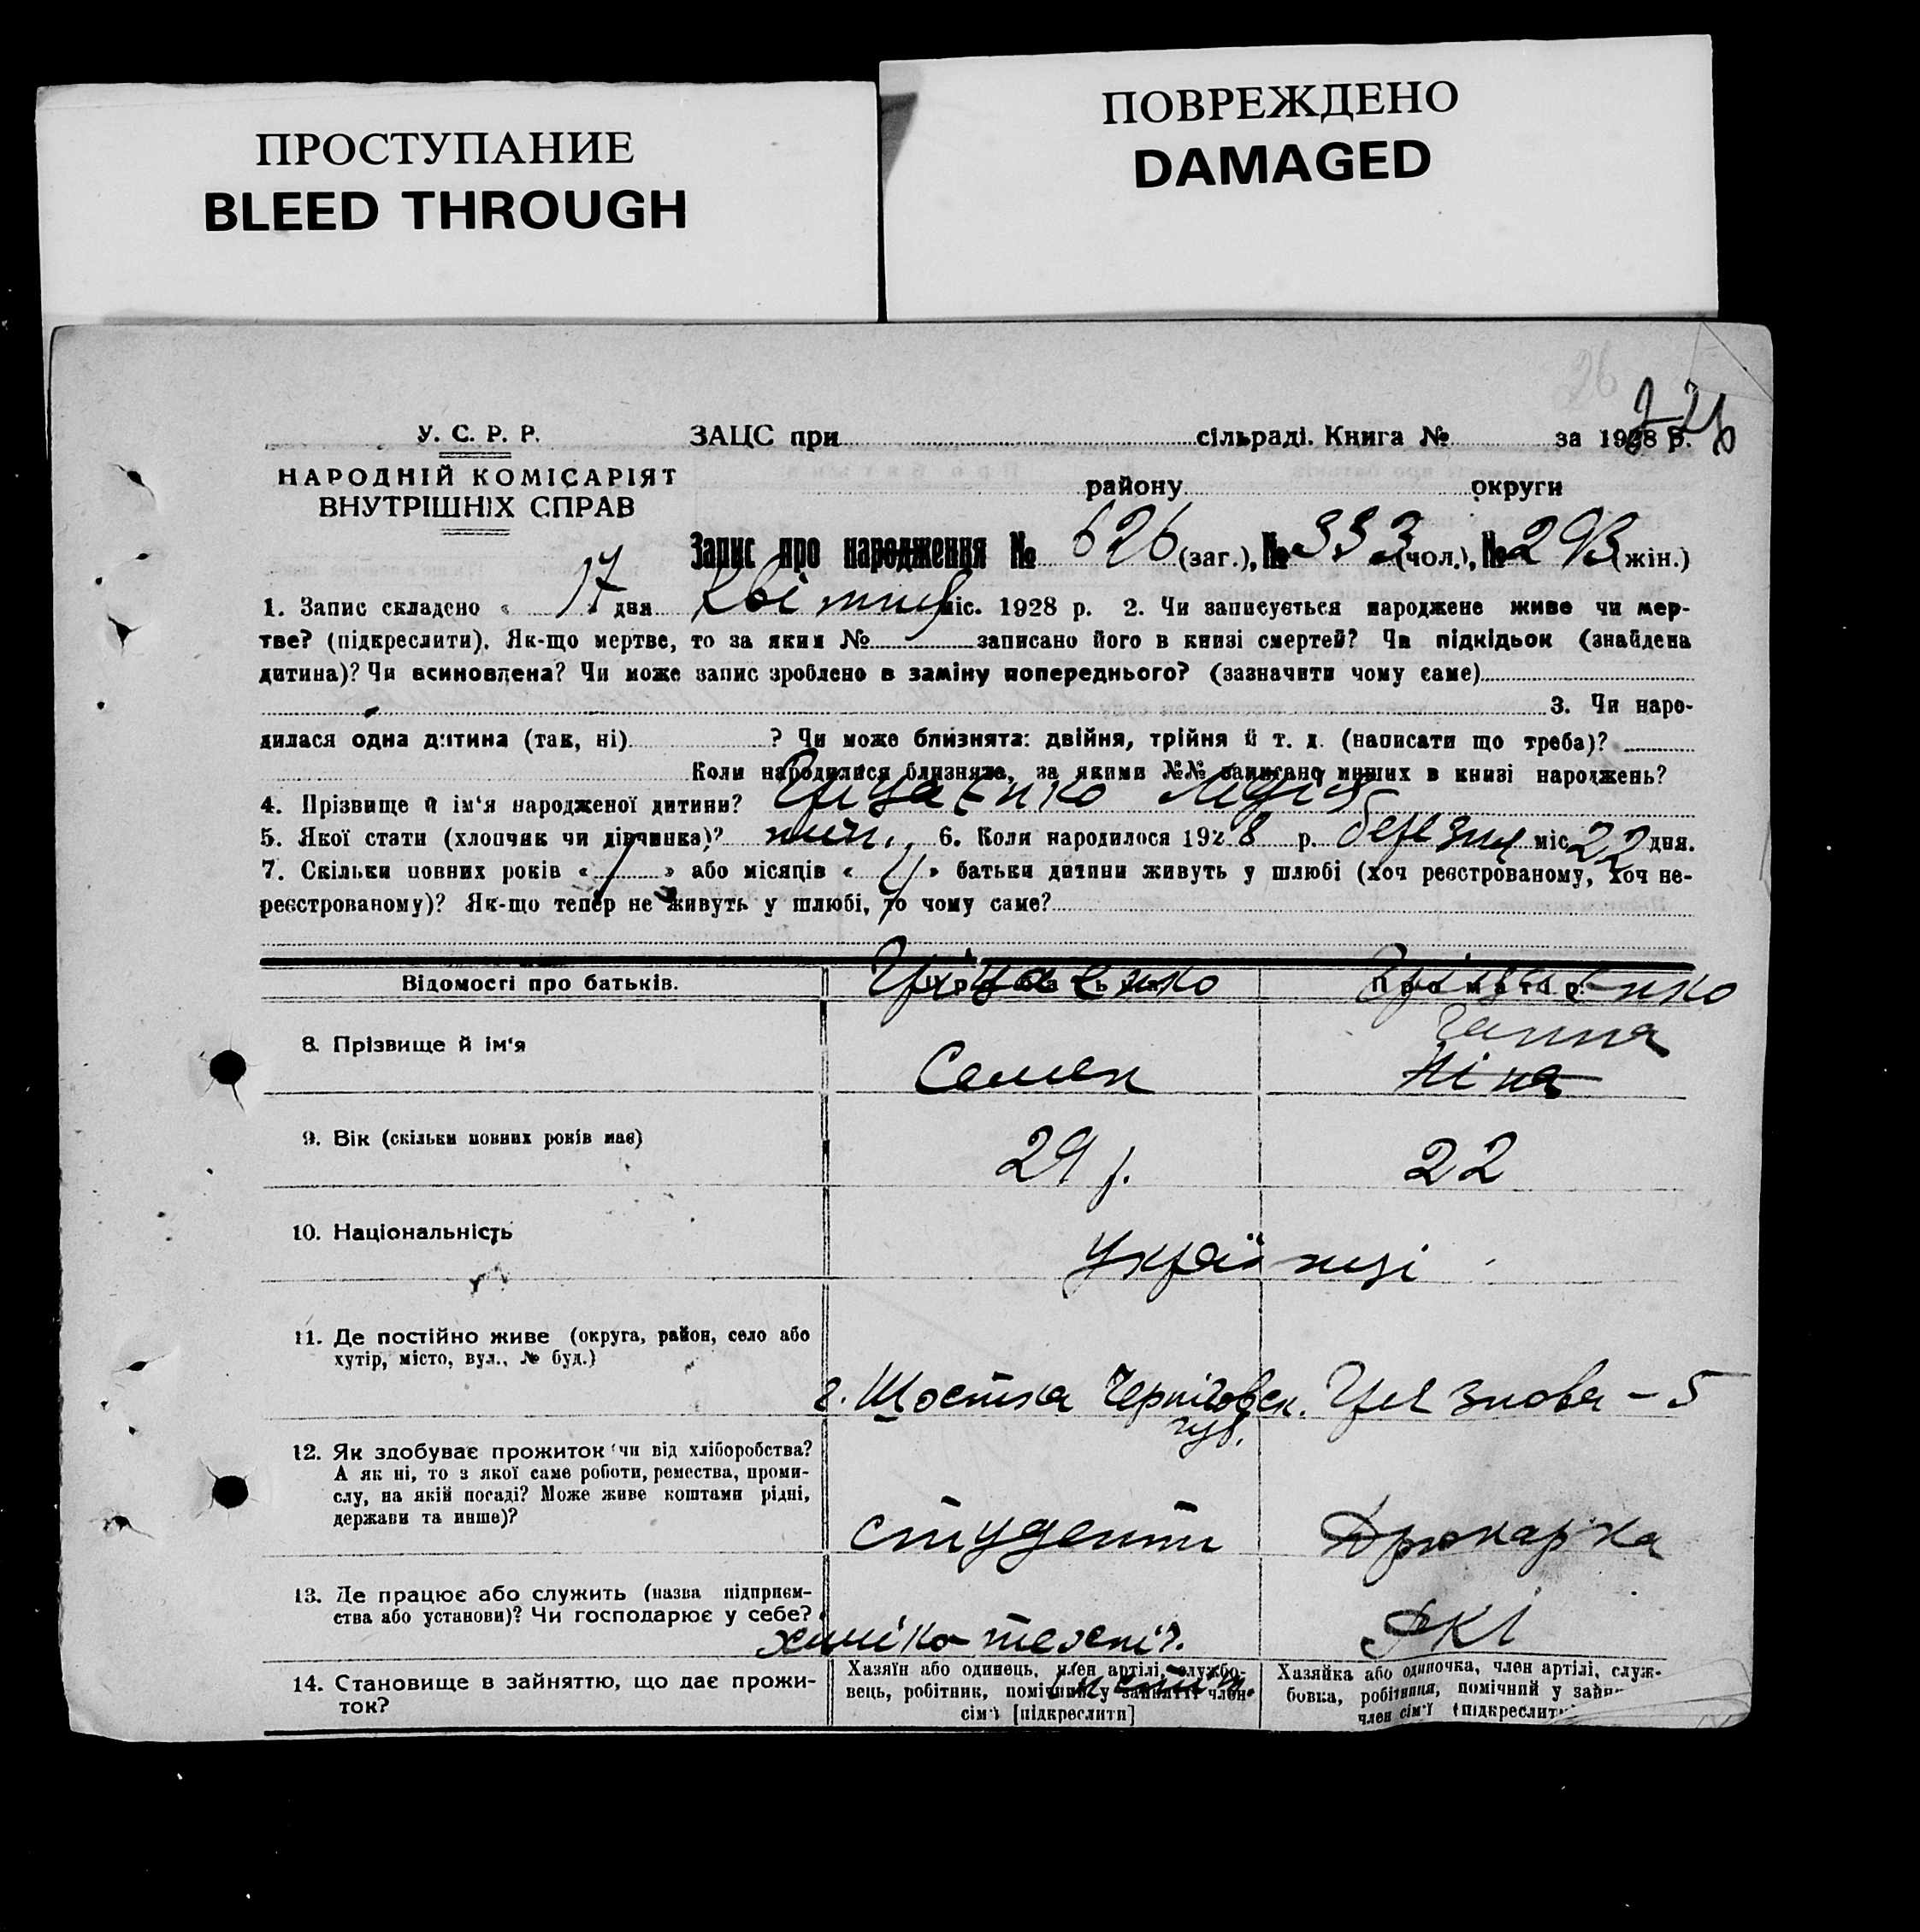 ПРОСТУПАНИЕ
BLEED THROUGH
ПОВРЕЖДЕНО
DAMAGED
26
У. С. Р. Р.
НАРОДНІЙ КОМІСАРІЯТ
ВНУТРІШНІХ СПРАВ
ЗАЦС при сільраді. Книга № за 1928 р.
району округи
Запис про народження № 626 (заг.), № 333 (чол.), № 293 (жін.)
1. Запис складено « 17 дня Квітня міс. 1928 р. 2. Чи записується народжене живе чи мер-
тве? (підкреслити). Як-що мертве, то за яким № записано його в книзі смертей? Чи підкідьок (знайдена
дитина)? Чи всиновлена? Чи може запис зроблено в заміну попереднього? (зазначити чому саме)
3. Чи наро-
дилася одна дитина (так, ні) ? Чи може близнята: двійня, трійня й т. д. (написати що треба)?
Коли народилися близнята, за якими №№ записано инших в книзі народжень?
4. Прізвище й ім'я народженої дитини? Грищенко Лідія
5. Якої стати (хлопчик чи дівчинка)? жін. 6. Коли народилося 1928 р. березня міс 22 дня.
7. Скільки повних років « » або місяців « » батьки дитини живуть у шлюбі (хоч реєстрованому, хоч не-
реєстрованому)? Як-що тепер не живуть у шлюбі, то чому саме?
Відомості про батьків. Про батька Про матір
8. Прізвище й ім'я Грищенко Семен Грищенко Ніна Ганна
9. Вік (скільки повних років має) 29 р. 22
10. Національність Українці
11. Де постійно живе (округа, район, село або
хутір, місто, вул., № буд.)
г. Шостка Черніговск. губ. – 5
12. Як здобуває прожиток (чи від хліборобства?
А як ні, то з якої саме роботи, ремества, проми-
слу, на якій посаді? Може живе коштами рідні,
держави та инше)?
студент Друкарка
13. Де працює або служить (назва підприєм-
ства або установи)? Чи господарює у себе?
химіко-технич. инстит.
14. Становище в зайняттю, що дає прожи-
ток?
Хазяїн або одинець, член артілі, службо-
вець, робітник, помічний у зайнятті член
сім'ї [підкреслити]
Хазяйка або одиночка, член артілі, служ-
бовка, робітниця, помічний у зайн
член сім'ї (підкреслити